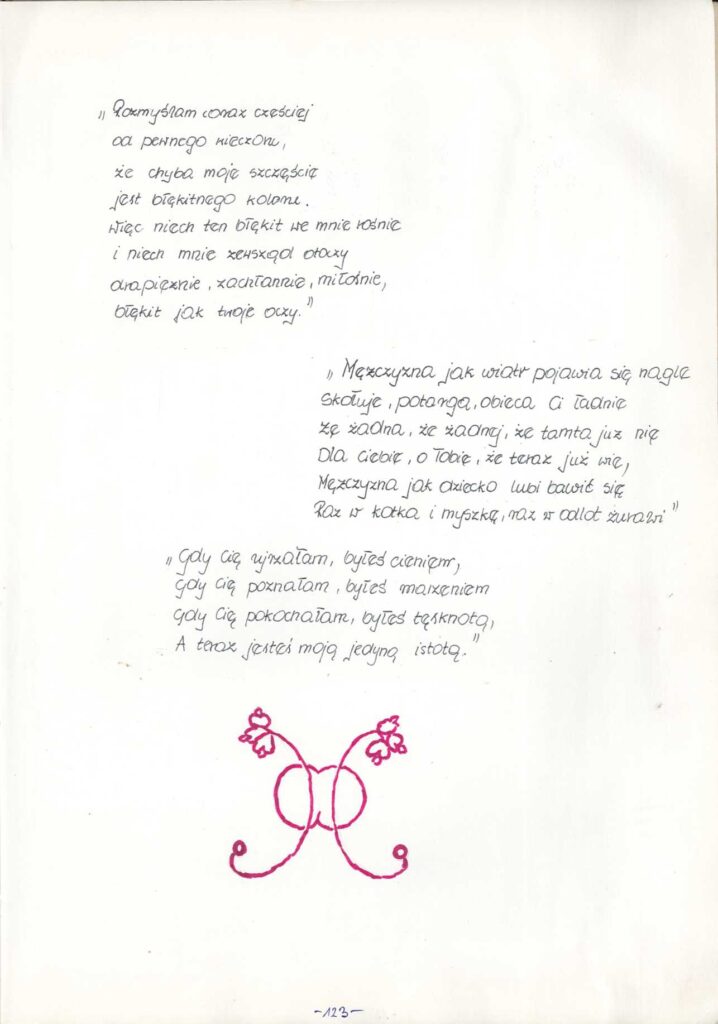 „Rozmyślam coraz częściej
od pewnego wieczoru,
że chyba moje szczęście
jest błękitnego koloru.
Więc niech ten błękit we mnie rośnie
i niech mnie zewsząd otoczy
drapieżnie, zachłannie, miłośnie,
błękit jak twoje oczy.”
„Mężczyzna jak wiatr pojawia się nagle
Skołuje, potarga, obieca Ci ładnie
że żadna, że żadnej, że tamta już nie
Dla Ciebie, o Tobie, że teraz już wie,
Mężczyzna jak dziecko lubi bawić się
Raz w kotka i myszkę, raz w odlot żurawi”
„Gdy Cię ujrzałam, byłeś cieniem,
Gdy Cię poznałam, byłeś marzeniem
Gdy Cię pokochałam, byłeś tęsknotą,
A teraz jesteś moją jedyną istotą.”
-123-